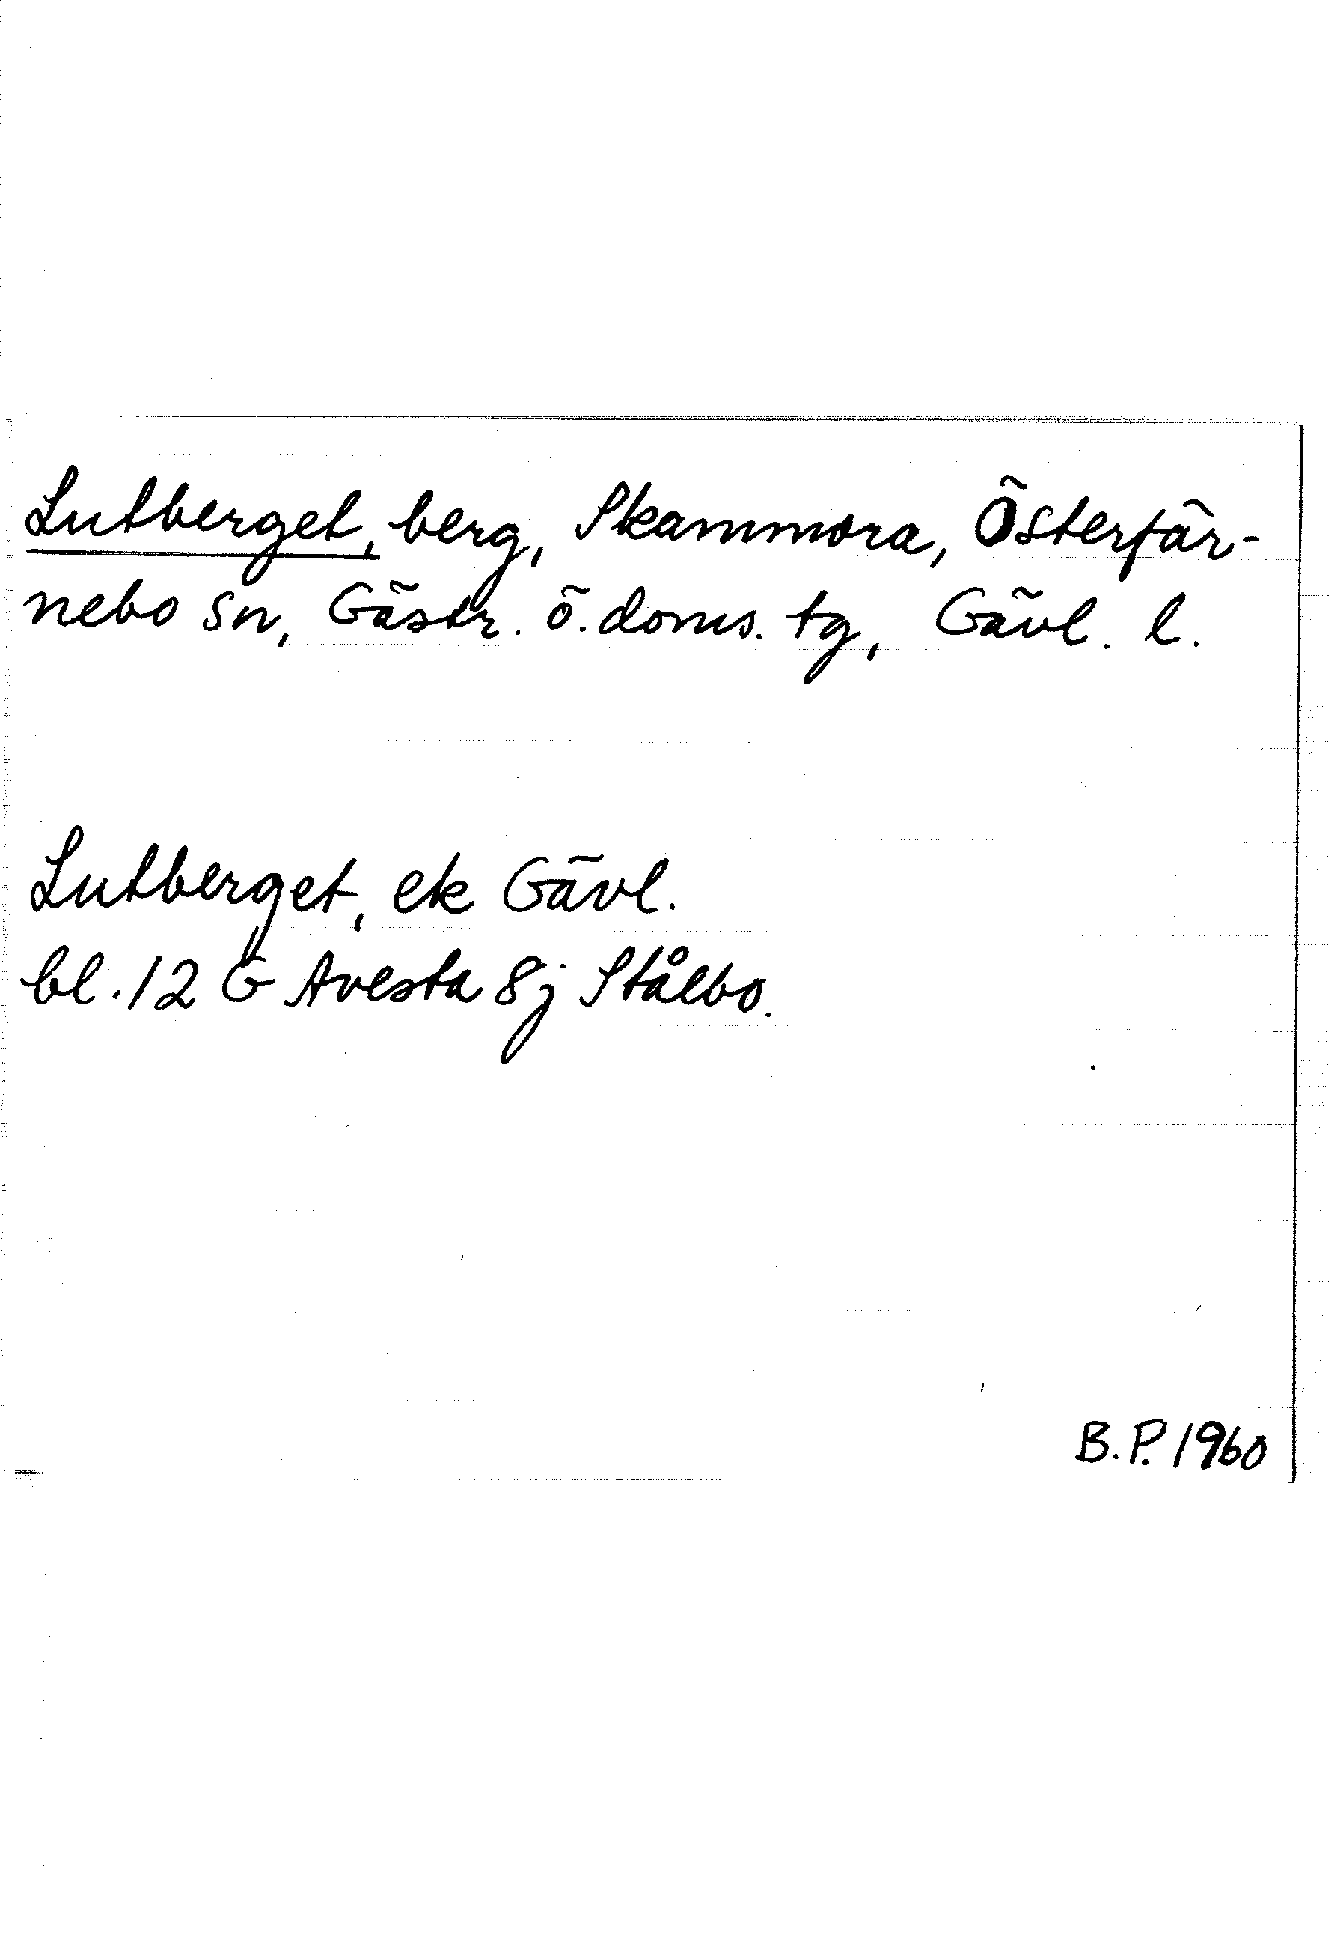 Lutberget, berg, Skammora, Österfär-
nebo sn, Gästr. ö. doms. tg, Gävl. l.
Lutberget, ek Gävl.
bl. 12 G Avesta 8j Stålbo.
B.P. 1960